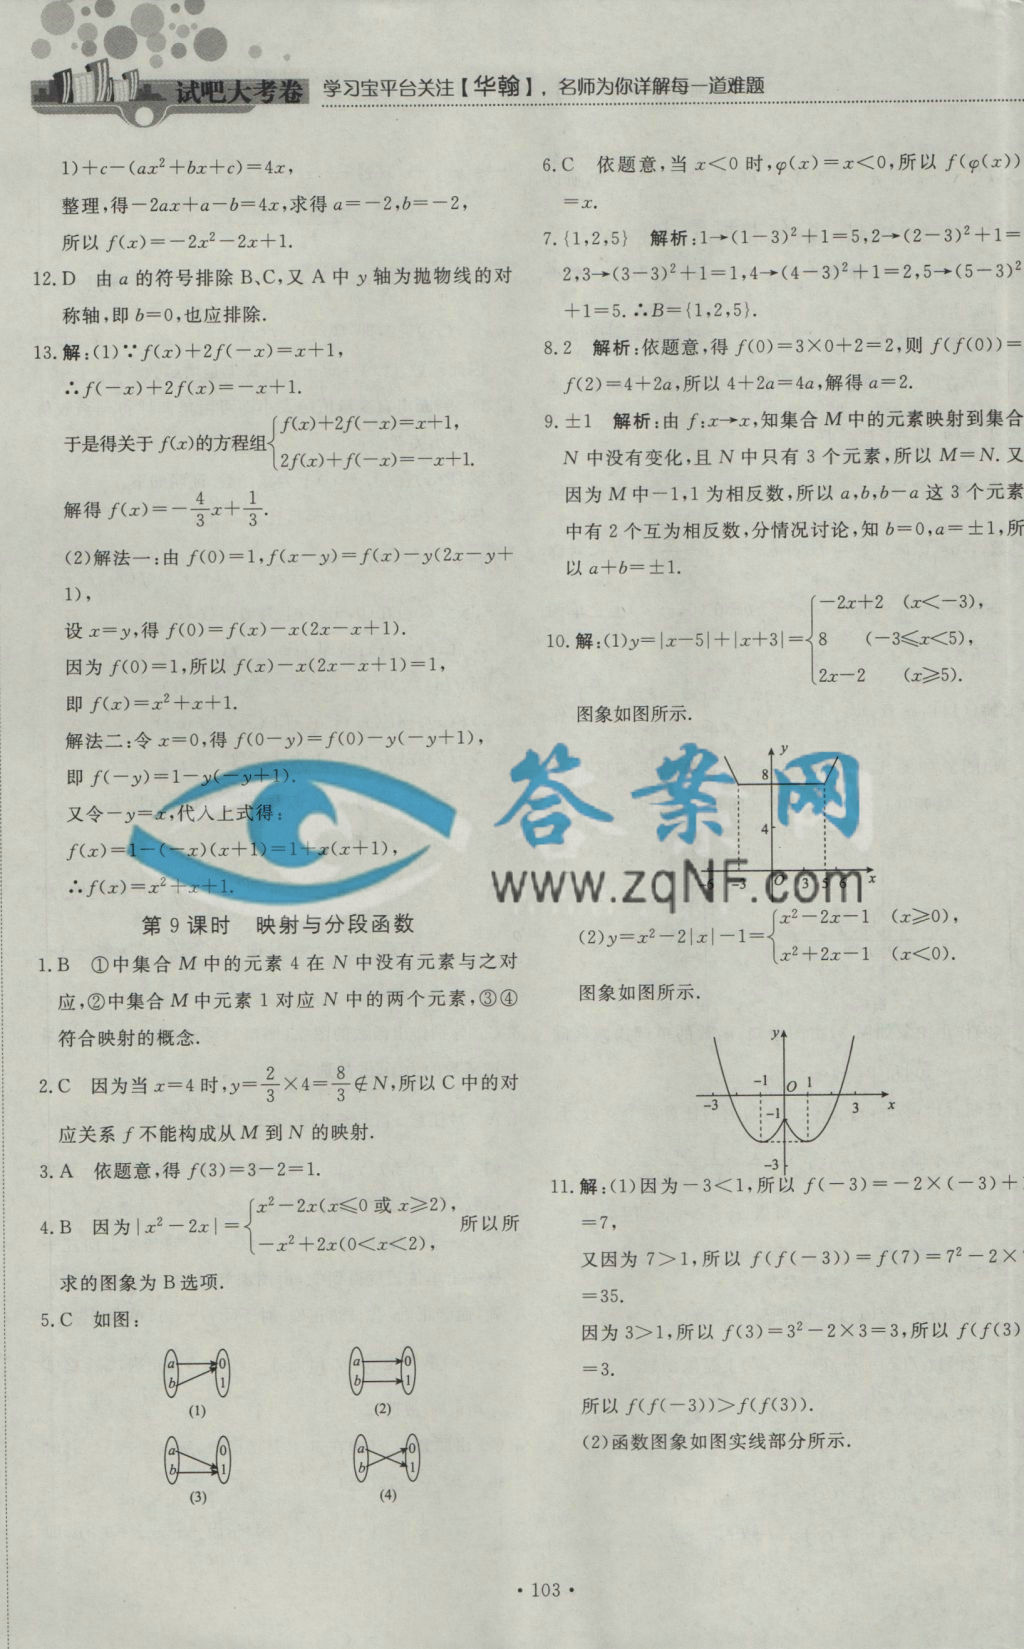 试吧大考卷 学习宝平台关注【华翰】，名师为你详解每一道难题
1)+c-(ax²+bx+c)=4x,
整理,得-2ax+a-b=4x,求得a=-2,b=-2,
所以 f(x)=-2x²-2x+1.
12.D 由 a 的符号排除 B、C,又 A 中 y 轴为抛物线的对
称轴,即 b=0,也应排除.
13.解:(1)∵f(x)+2f(-x)=x+1,
∴f(-x)+2f(x)=-x+1.
于是得关于 f(x)的方程组{f(x)+2f(-x)=x+1,
2f(x)+f(-x)=-x+1.
解得 f(x)=-4/3x+1/3.
(2)解法一:由 f(0)=1,f(x-y)=f(x)-y(2x-y+
1),
设 x=y,得 f(0)=f(x)-x(2x-x+1).
因为 f(0)=1,所以 f(x)-x(2x-x+1)=1,
即 f(x)=x²+x+1.
解法二:令 x=0,得 f(0-y)=f(0)-y(-y+1),
即 f(-y)=1-y(-y+1).
又令-y=x,代入上式得:
f(x)=1-(-x)(x+1)=1+x(x+1),
∴f(x)=x²+x+1.
第 9 课时 映射与分段函数
1.B ①中集合 M 中的元素 4 在 N 中没有元素与之对
应,②中集合 M 中元素 1 对应 N 中的两个元素,③④
符合映射的概念.
2.C 因为当 x=4 时,y=2/3×4=8/3∉N,所以 C 中的对
应关系 f 不能构成从 M 到 N 的映射.
3.A 依题意,得 f(3)=3-2=1.
4.B 因为|x²-2x|={x²-2x(x≤0 或 x≥2),
-x²+2x(0<x<2), 所以所
求的图象为 B 选项.
5.C 如图:
a b 0 1
(1)
a b 0 1
(2)
a b 0 1
(3)
a b 0 1
(4)
6.C 依题意,当 x<0 时,φ(x)=x<0,所以 f(φ(x))
=x.
7.{1,2,5} 解析:1→(1-3)²+1=5,2→(2-3)²+1=
2,3→(3-3)²+1=1,4→(4-3)²+1=2,5→(5-3)²
+1=5.∴B={1,2,5}.
8.2 解析:依题意,得 f(0)=3×0+2=2,则 f(f(0))=
f(2)=4+2a,所以 4+2a=4a,解得 a=2.
9.±1 解析:由 f:x→x,知集合 M 中的元素映射到集合
N 中没有变化,且 N 中只有 3 个元素,所以 M=N.又
因为 M 中-1,1 为相反数,所以 a,b,b-a 这 3 个元素
中有 2 个互为相反数,分情况讨论,知 b=0,a=±1,所
以 a+b=±1.
10.解:(1)y=|x-5|+|x+3|={-2x+2 (x<-3),
8 (-3≤x<5),
2x-2 (x≥5).
图象如图所示.
y
8
4
-6 -3 O 3 5 6 x
答案网
www.zqNF.com
(2)y=x²-2|x|-1={x²-2x-1 (x≥0),
x²+2x-1 (x<0).
图象如图所示.
y
-1 O 1
-3 -1 3 x
-3
11.解:(1)因为-3<1,所以 f(-3)=-2×(-3)+
=7,
又因为 7>1,所以 f(f(-3))=f(7)=7²-2×
=35.
因为 3>1,所以 f(3)=3²-2×3=3,所以 f(f(3)
=3.
所以 f(f(-3))>f(f(3)).
(2)函数图象如图实线部分所示.
· 103 ·